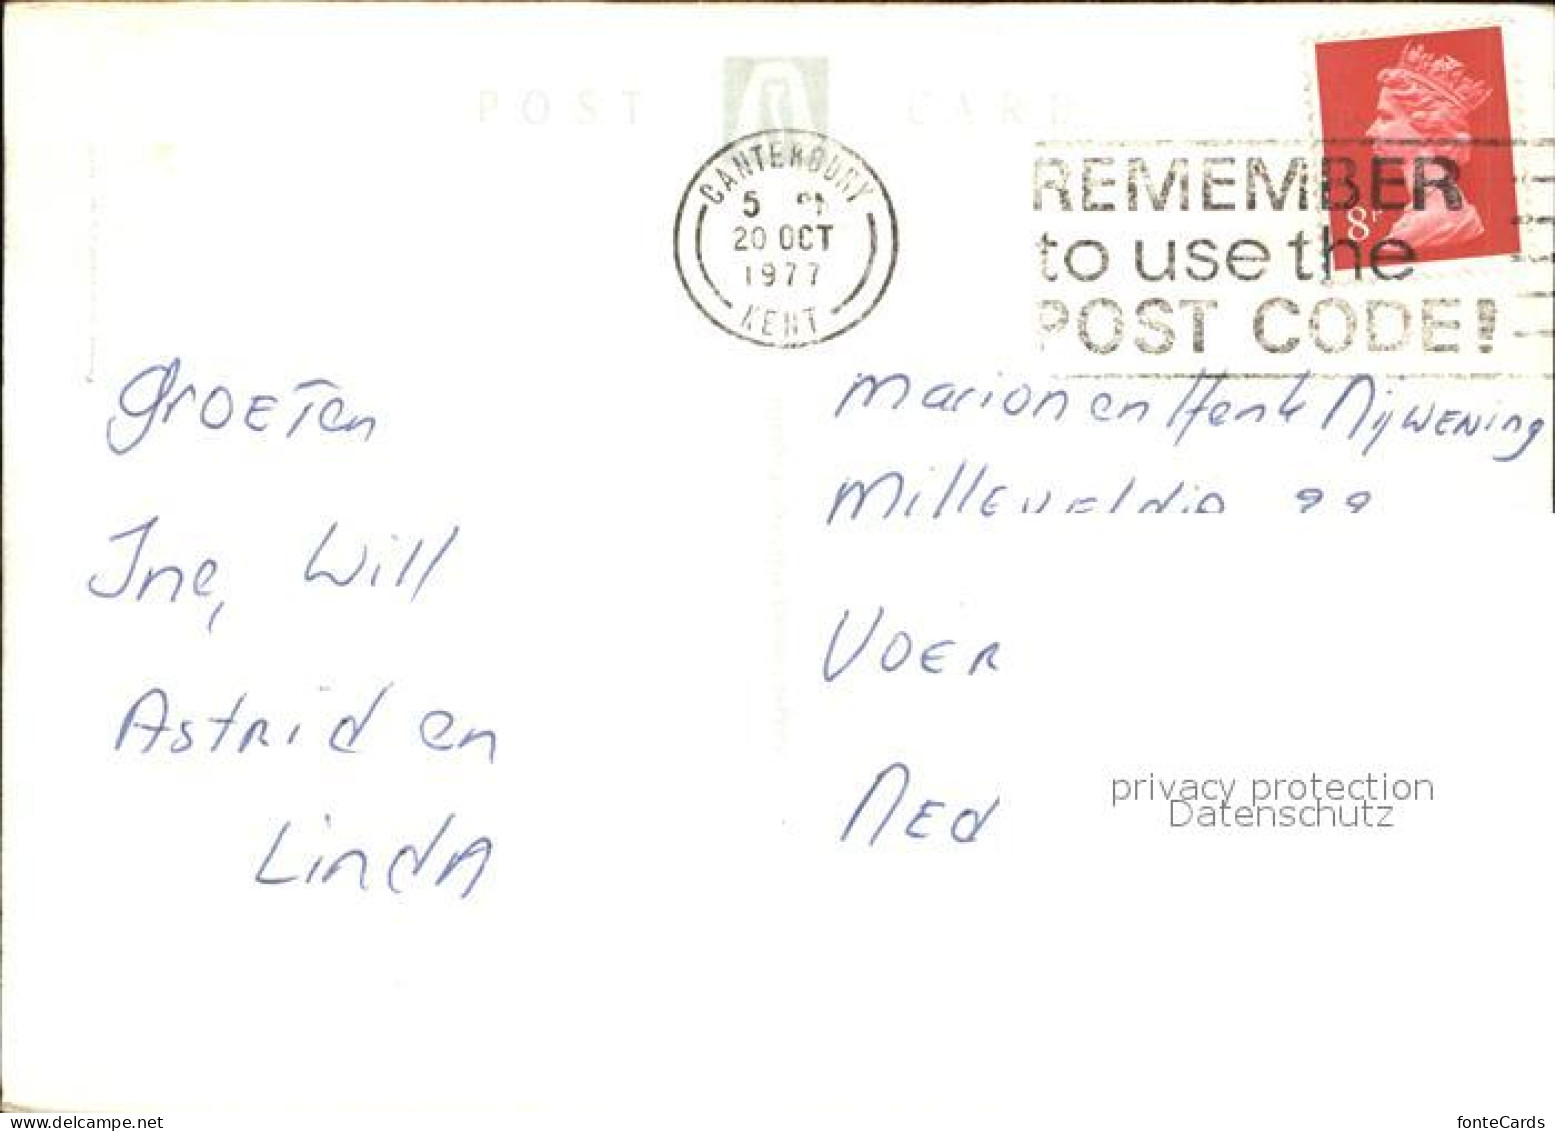 POST CARD
CANTERBURY
5 PM
20 OCT
1977
KENT
REMEMBER
to use the
POST CODE!
8P
Groeten
Ine, Will
Astrid en
Linda
Marion en Henk Nijwening
VOER
NEd
privacy protection
Datenschutz
www.delcampe.net
fonteCards